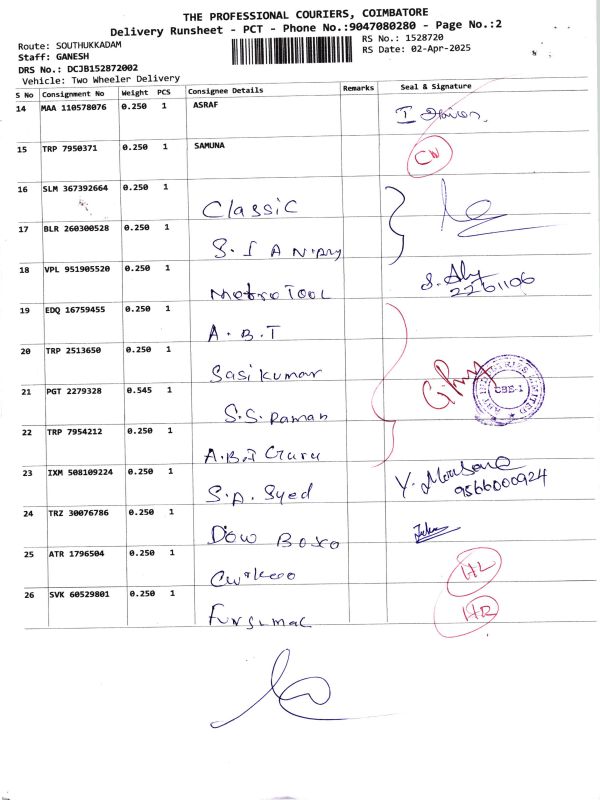 THE PROFESSIONAL COURIERS, COIMBATORE
Delivery Runsheet - PCT - Phone No.:9047080280 - Page No.:2
Route: SOUTHUKKADAM
RS No.: 1528720
Staff: GANESH
RS Date: 02-Apr-2025
DRS No.: DCJB152872002
Vehicle: Two Wheeler Delivery
S No Consignment No Weight PCS Consignee Details Remarks Seal & Signature
14 MAA 110578076 0.250 1 ASRAF
15 TRP 7950371 0.250 1 SAMUNA CW
16 SLM 367392664 0.250 1 Classic
17 BLR 260300528 0.250 1
18 VPL 951905520 0.250 1 Metro TOOL 2261106
19 EDQ 16759455 0.250 1 A.B.T
20 TRP 2513650 0.250 1 Sasikumar
21 PGT 2279328 0.545 1 S.S. Raman CBE-1
22 TRP 7954212 0.250 1 A.B.T
23 IXM 508109224 0.250 1 S.A. Syed 9566000924
24 TRZ 30076786 0.250 1 Dow
25 ATR 1796504 0.250 1 HL
26 SVK 60529801 0.250 1